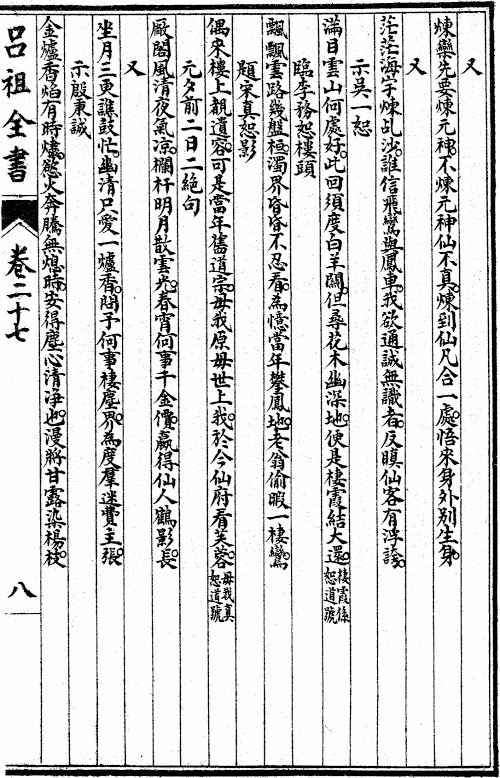 又
煉藥先要煉元神不煉元神仙不真煉到仙凡合一處悟來身外別生身
又
茫茫海宇煉乩沙誰信飛鸞與鳳車我欲通誠無識者反瞋仙客有浮誇
示吳一恕
滿目雲山何處好此回須度白羊關但尋花木幽深地便是棲霞結大還棲霞係恕道號
臨李務恕樓頭
飄飄雲路幾盤桓濁界昏昏不忍看為憶當年攀鳳地老翁偷暇一棲鸞
題宋真恕影
偶來樓上覩遺容可是當年舊道宗毋我原毋世上我於今仙府看芙蓉毋我真恕道號
元夕前二日二絕句
殿閣風清夜氣凉欄杆明月散雲光春宵何事千金價贏得仙人鶴影長
又
坐月三更譙鼓忙幽清只愛一爐香問予何事棲塵界為度羣迷費主張
示殷秉誠
金爐香焰有時燼慾火奔騰無熄時安得塵心清淨也漫將甘露染楊枝
呂祖全書
卷二十七
八